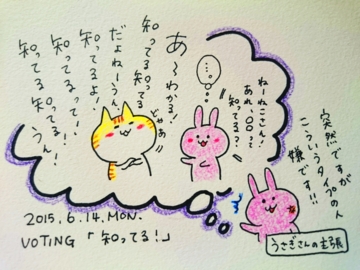 突然ですが
こういうタイプのん
嫌です!!
ねーねこさん!
あれ、〇〇って
知ってる?
…。
じゃあ
あ〜わかる!
知ってる知ってる
だよねーうん。
知ってるよ!
知ってるってー!
知ってる知ってる!
うん!
うさぎさんの主張
2015.6.14.MON.
VOTING「知ってる!」